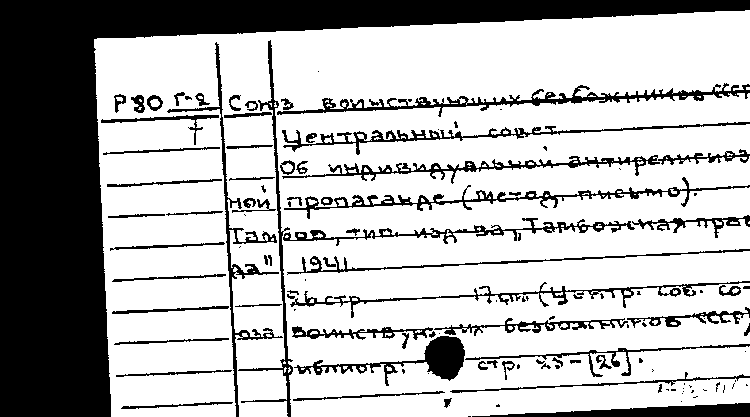 Р30 Г-2 Союз воинствующих безбожников СССР
7 Центральный совет
Об индивидуальной антирелигиоз
ной пропаганде (метод. письмо).
Тамбов, тип. изд-ва „Тамбовская прав
да" 1941.
26 стр. 17 см (Центр. сов. со-
юза воинствующих безбожников СССР)
Библиогр: стр. 25-[26].